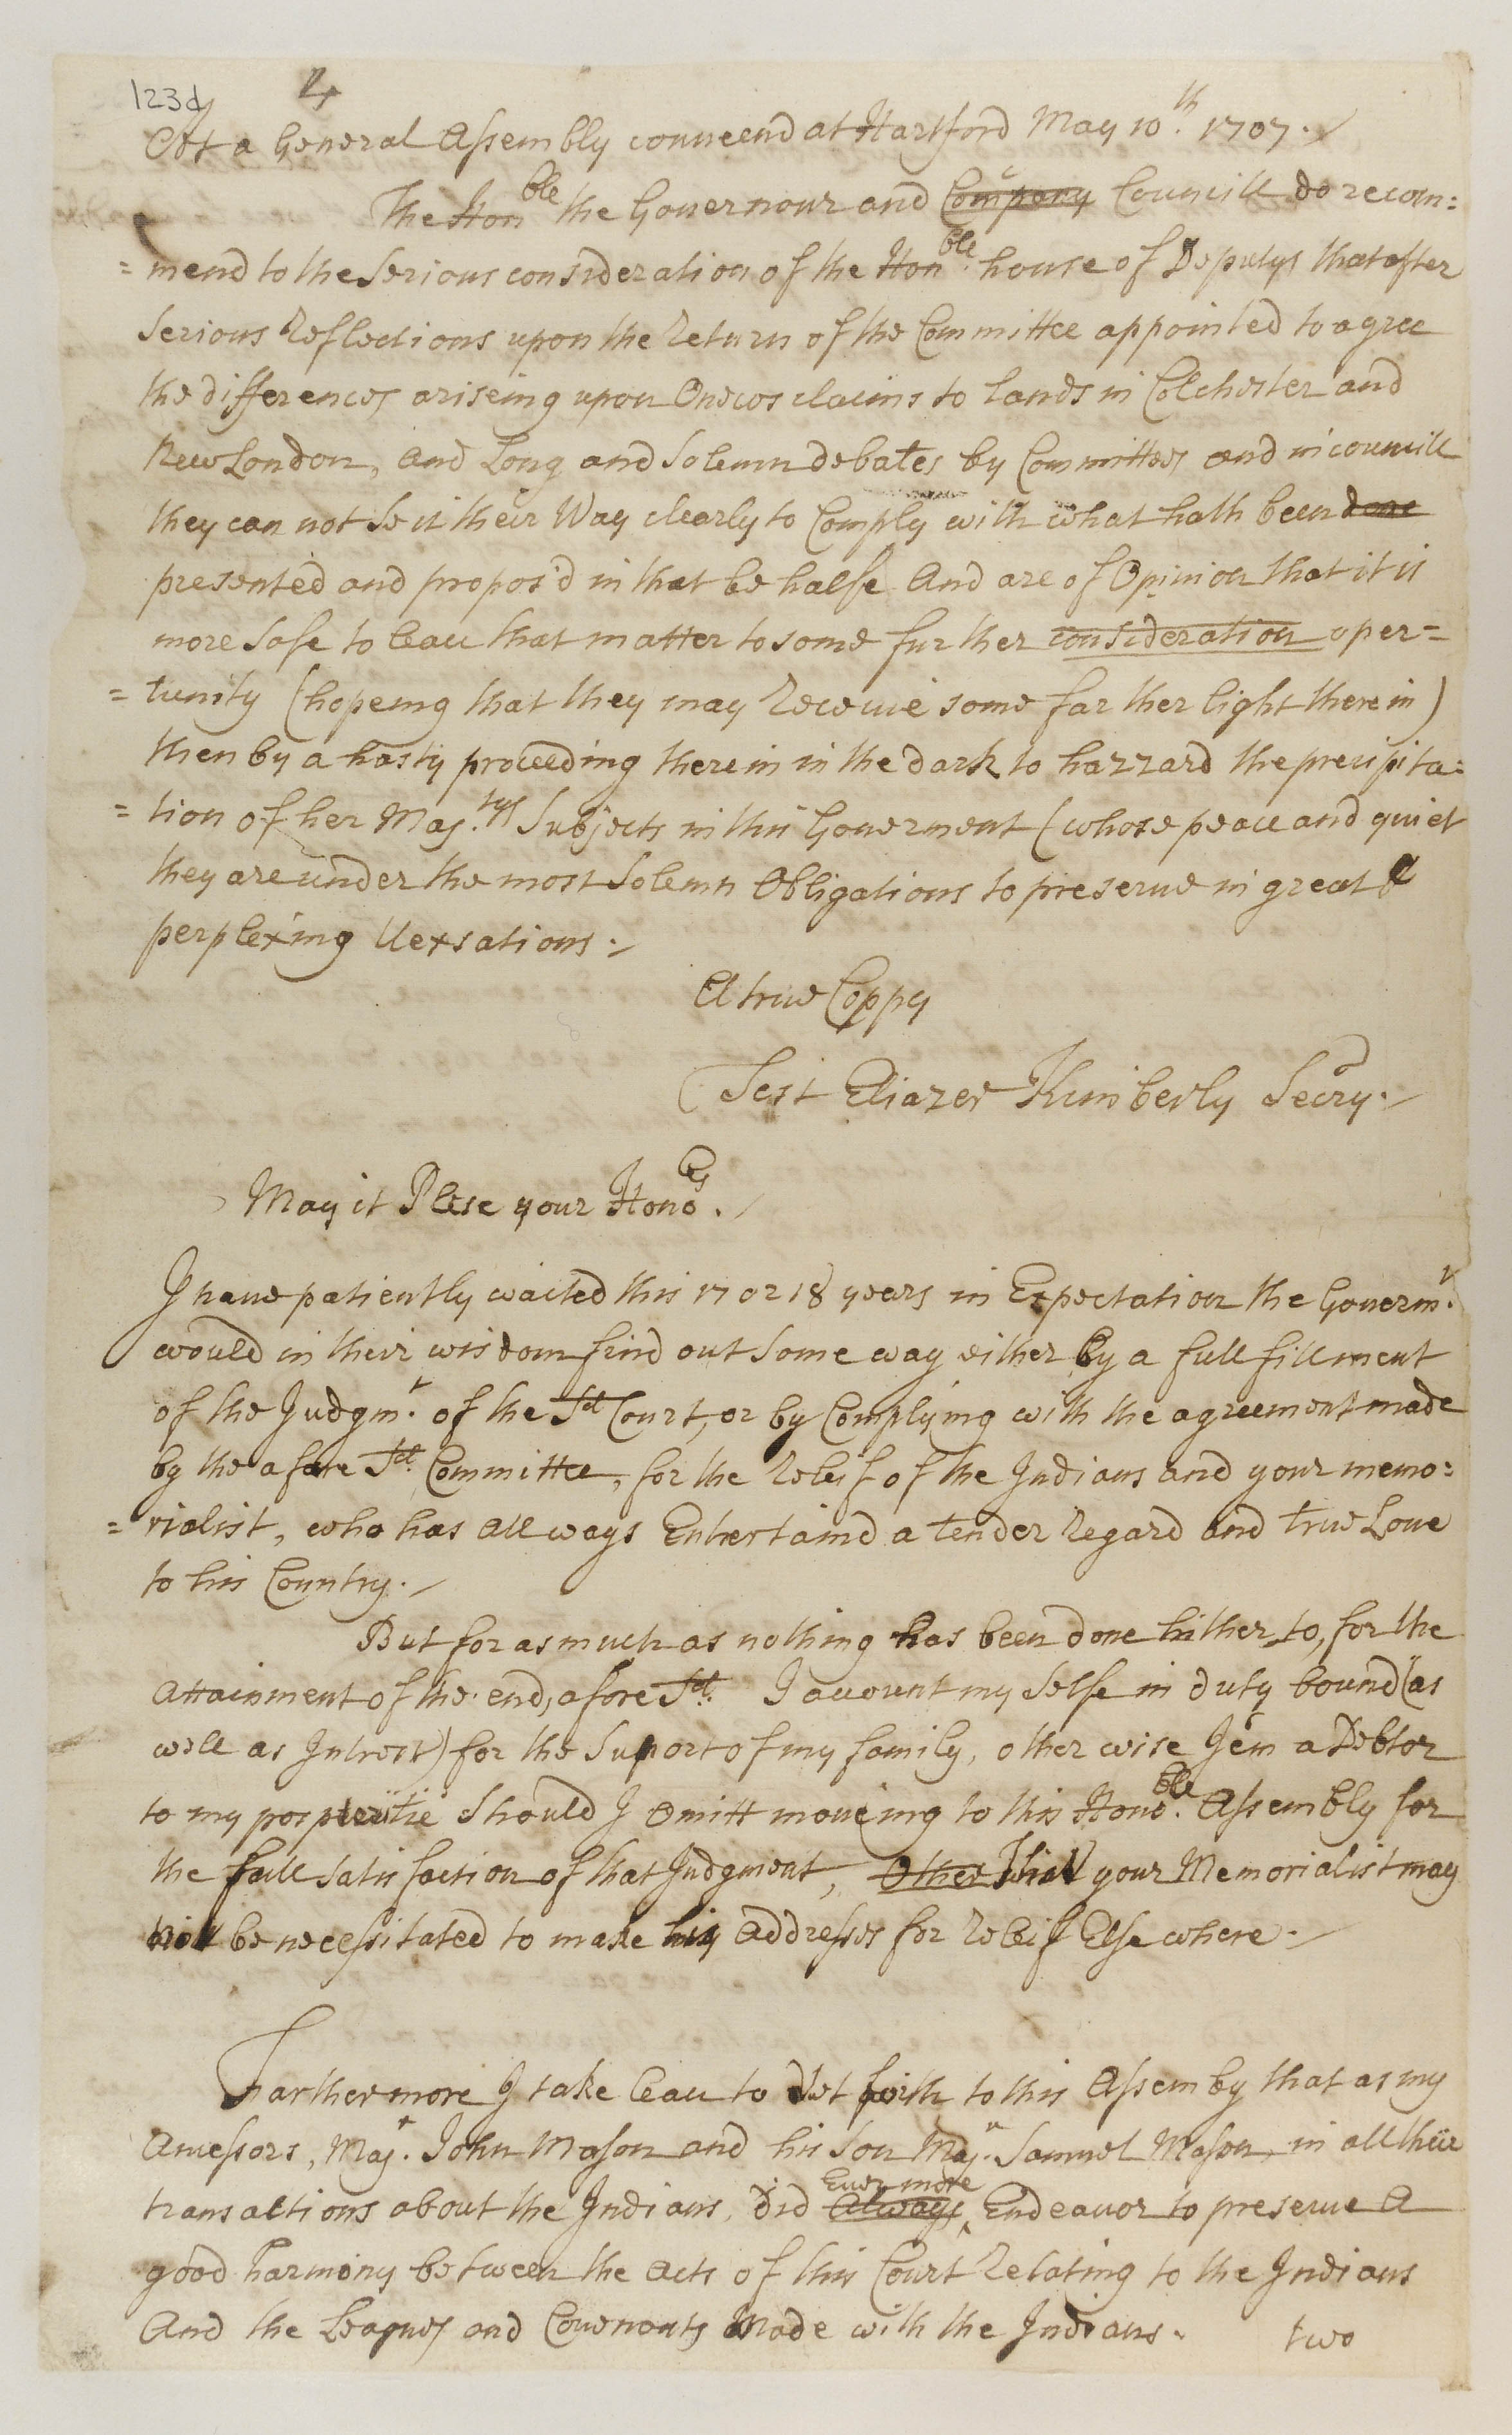 123d 4
Att a General Assembly conueend at Hartford May 10.th 1707.
The Honble the Gouernour and Company Councill do recom=
=mend to the Serious consideration of the Honble. house of Deputys that after
Serious Reflections upon the Return of the Committee appointed to agree
the differences ariseing upon Onecos claims to Lands in Colchester and
New London, and Long and Solemn debates by Committees and in councill
they can not Se it their Way clearly to Comply with what hath been done
presented and propos'd in that behalfe And are of Opinion that it is
more Safe to leau that matter to some further consideration oper=
=tunity (hopeing that they may Receiue some farther light therein)
then by a hasty proceeding therein in the dark to hazzard the precipita=
=tion of her Maj.tys Subjects in this Gouerment (whose peace and quiet
they are under the most Solemn Obligations to preserue in great &
perplexing Uexsations.
A true Coppy
Test Eliazer Kimberly Secry.
May it Plese your Honors.
I haue patiently waited this 17 or 18 years in Expectation the Gouerm.t
would in their wisdom find out some way either by a full fillment
of the Judgm.t of the Sd Court, or by Complying with the agreement made
by the afore Sd. Committee, for the Releif of the Indians and your memo=
=rialist, who has allways Entertaind a tender Regard and true Loue
to his Country.
But for as much as nothing has been done hitherto, for the
attainment of the end, afore Sd. I account my Selfe in duty bound (as
well as Intrest) for the Suport of my family, other wise I em a Debtor
to my posteritie Should I omitt moueing to this Hono.ble Assembly for
the full satisfaction of that Judgment, Other that your Memorialist may
not be necessitated to make his addresses for Releif Else where.
Farthermore I take leau to Set forth to this Assemby that as my
Ancessors, Maj.r John Mason and his Son Maj.r Samuel Mason, in all their
Euer more
transactions about the Indians, did Always ‸ Endeauor to preserue a
good harmony between the Acts of this Court Relating to the Indians
And the Leagues and Couenants Made with the Indians.
two